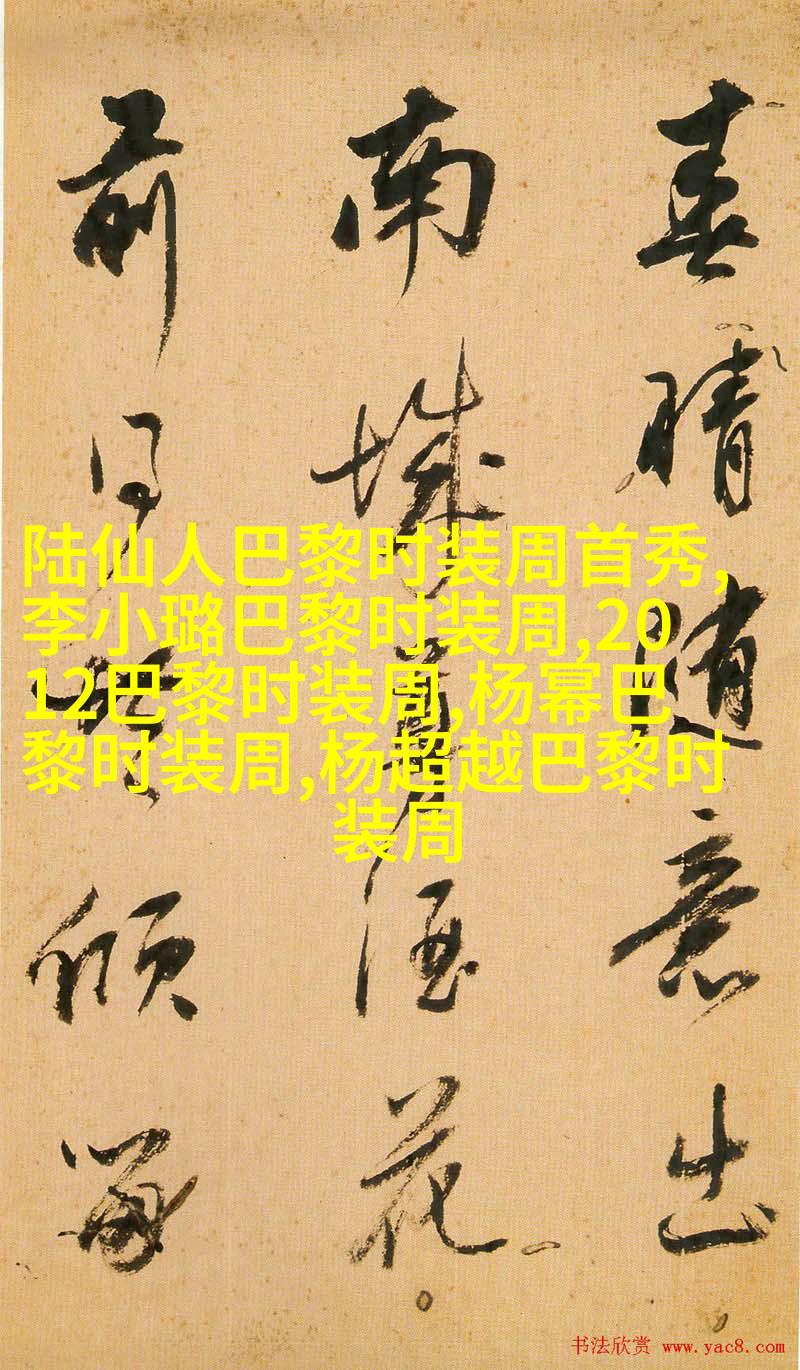 春晴随意出
南城尊酒花
前倾
陆仙人巴黎时装周首秀,
李小璐巴黎时装周,20
12巴黎时装周,杨幂巴
黎时装周,杨超越巴黎时
装周
书法欣赏 www.yac8.com